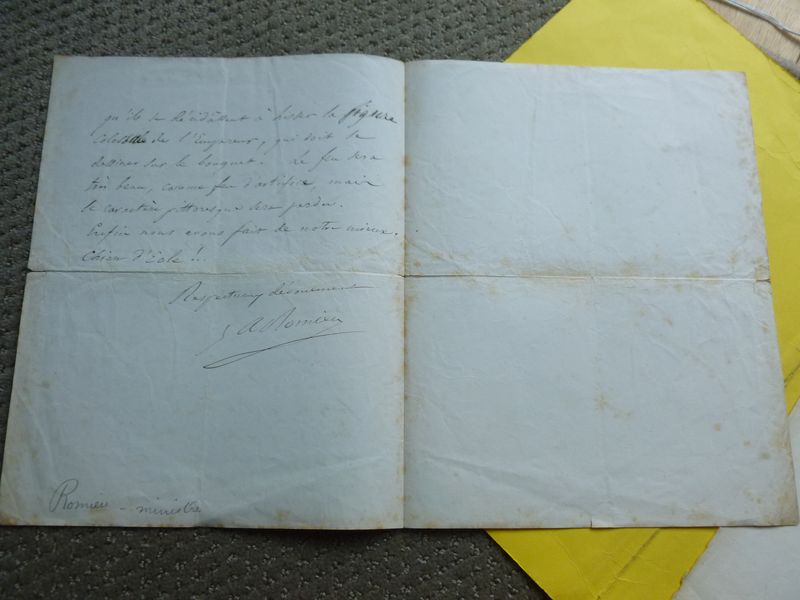 qu'ils se décidassent à hisser la figure
colossale de l'Empereur, qui doit se
dessiner sur le bouquet. ce feu sera
très beau, comme feu d'artifice, mais
le caractère pittoresque sera perdu.
Enfin nous avons fait de notre mieux.
Chien d'Eole !..
Respectueux dévouement
A Romieu
Romieu - ministre